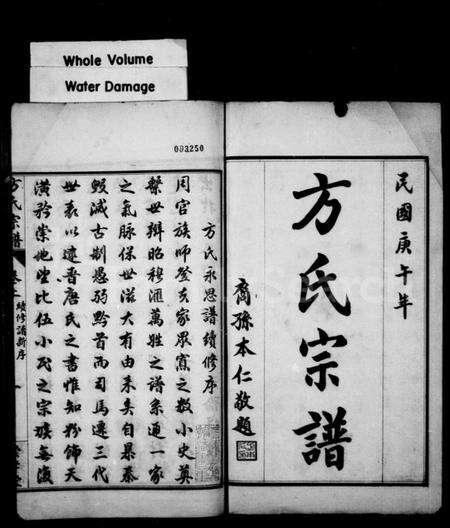 Whole Volume
Water Damage
003250
民國庚午年
方氏宗譜
裔孫本仁敬題
方氏永思譜續修序
周官族師登夫家眾寡之數小史奠
繫世辨昭穆滙萬姓之譜系通一家
之氣脉保世滋大有由来矣自暴秦
蝦滅古制愚弱黔首而司馬遷三代
世表以逮晋唐氏之書惟知粉飾天
潢矜崇地望比伍小民之宗族每復
方氏宗譜
卷一
續修譜新序
一